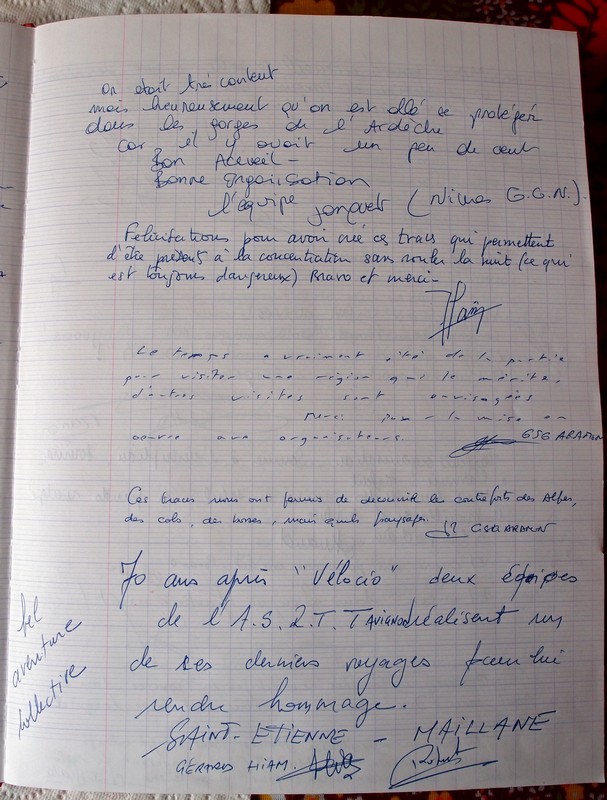 on était très content
mais heureusement qu'on est allé se protéger
dans les gorges de l'Ardèche
car il y avait un peu de vent
Bon Accueil -
Bonne Organisation
l'équipe (Nimes G.G.N.).
Félicitations pour avoir créé ces traces qui permettent
d'être présent à la concentration sans rouler la nuit (ce qui
est toujours dangereux) Bravo et merci -
Le temps a vraiment été de la partie
pour visiter une région qui le mérite,
d'autres visites sont envisagées
merci pour la mise en
oeuvre aux organisateurs. GSG ARAMON
Ces traces nous ont permis de découvrir les contreforts des Alpes,
des cols, des bosses, mais quels paysages. GSG ARAMON
70 ans après "Vélocio" deux équipes
de l'A.S.P.T.T AVIGNON réalisent un
de ses derniers voyages pour lui
rendre hommage.
SAINT-ETIENNE - MAILLANE
GERARD HIAM
bel
aventure
collective